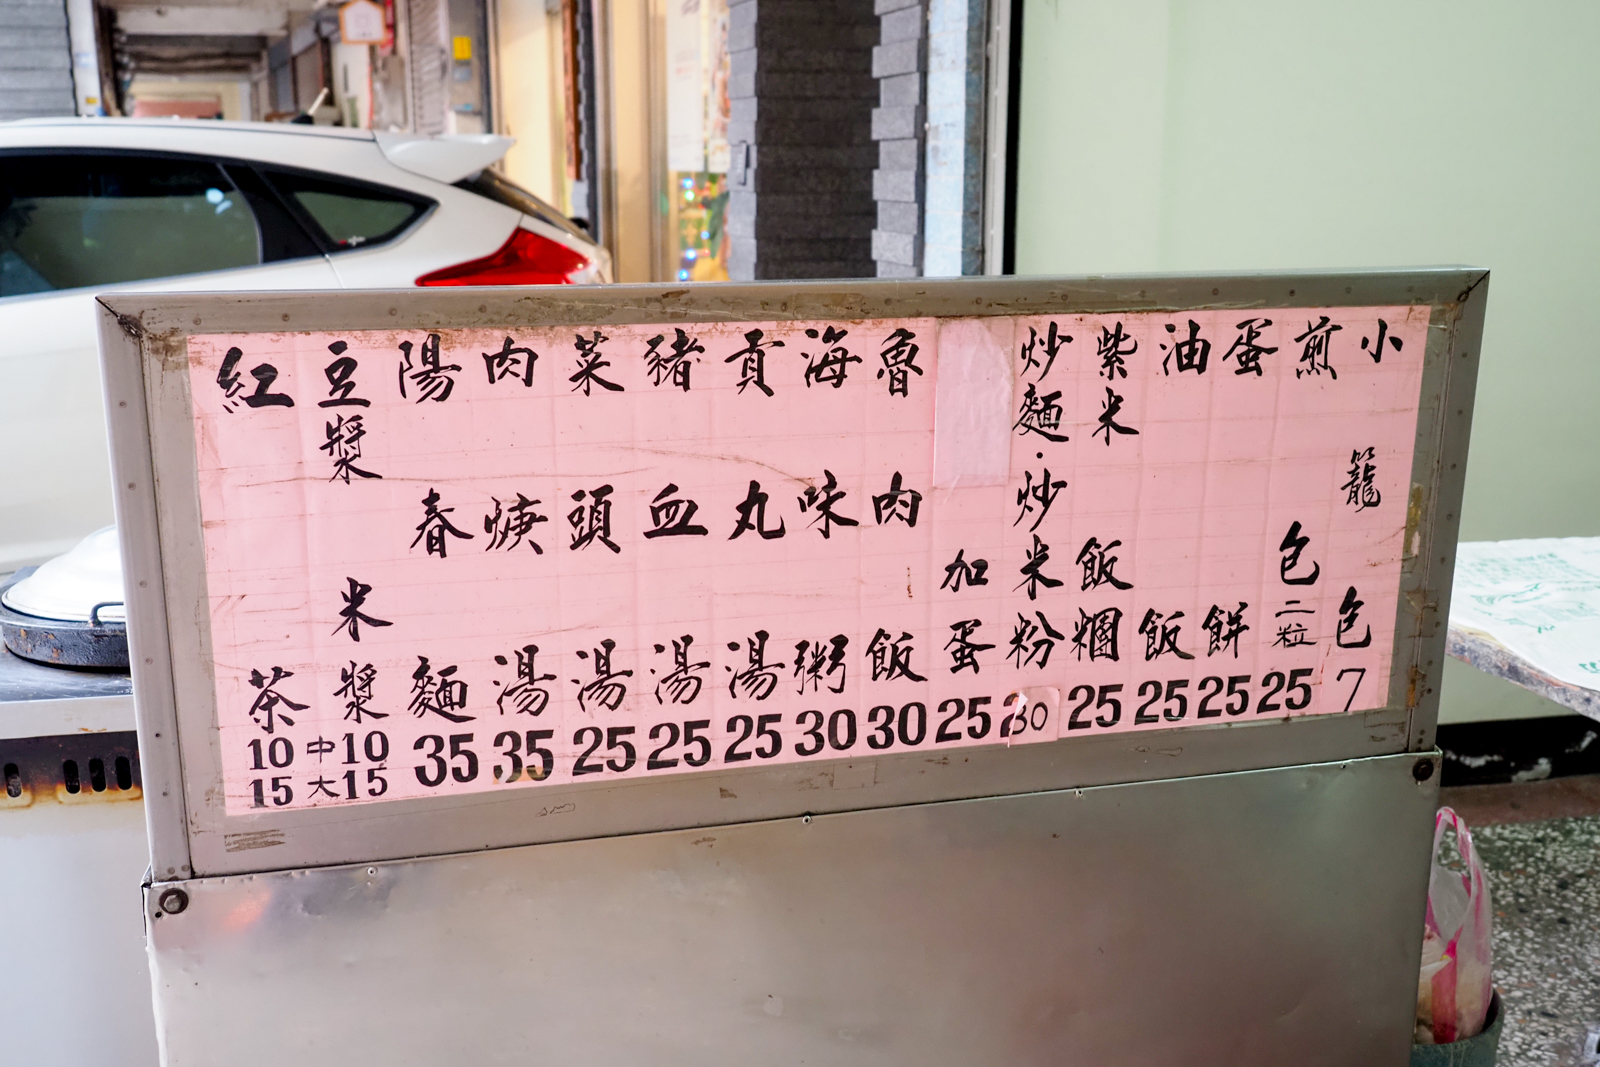 小籠包 7
煎包二粒 25
蛋餅 25
油飯 25
紫米飯糰 25
炒麵·炒米粉 30
加蛋 25
魯肉飯 30
海味粥 30
貢丸湯 25
豬血湯 25
菜頭湯 25
肉焿湯 35
陽春麵 35
豆漿
米漿
中10
大15
紅茶
10
15